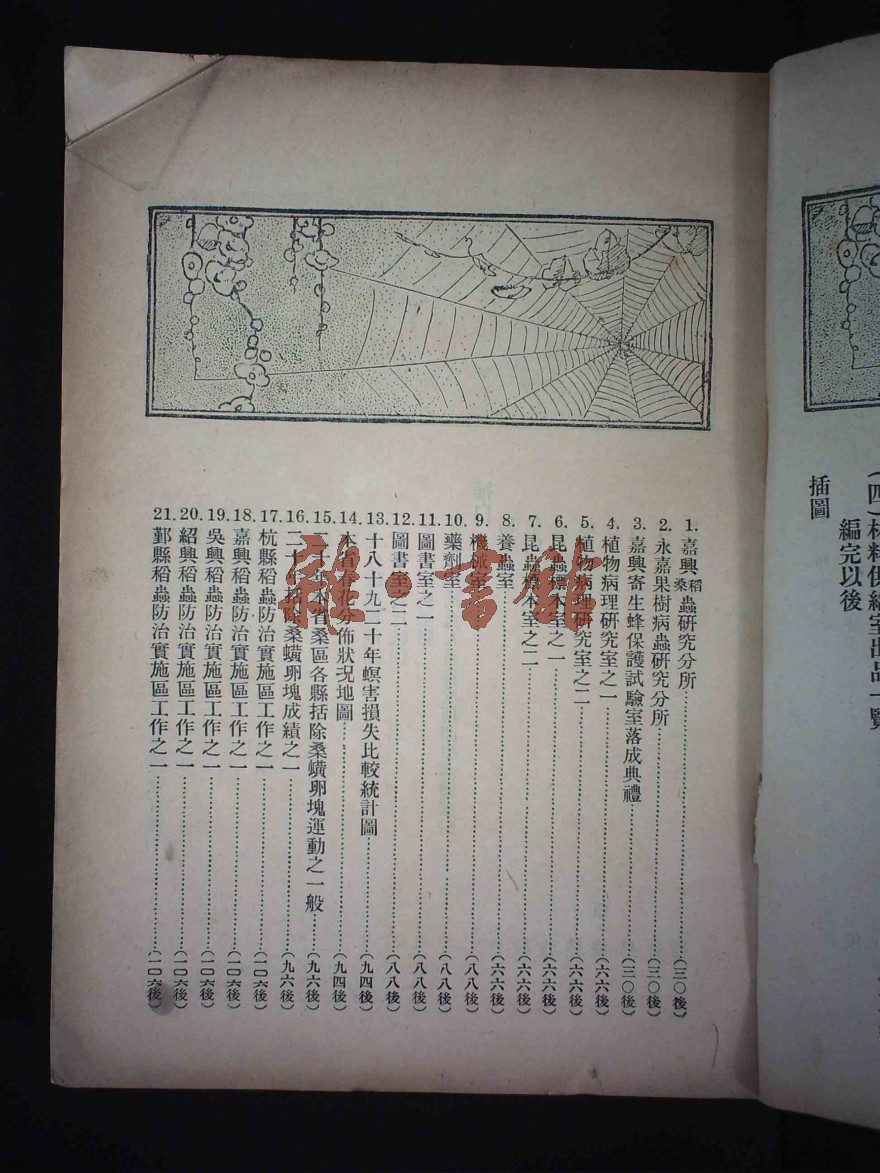 (四)材料供給室出品一覽
編完以後
插圖
1. 嘉興稻桑蟲研究分所(三〇後)
2. 永嘉果樹病蟲研究分所(三〇後)
3. 嘉興寄生蜂保護試驗室落成典禮(三〇後)
4. 植物病理研究室之一(六六後)
5. 植物病理研究室之二(六六後)
6. 昆蟲標本室之一(六六後)
7. 昆蟲標本室之二(六六後)
8. 養蟲室(六六後)
9. 機械室(八八後)
10. 藥劑室(八八後)
11. 圖書室之一(八八後)
12. 圖書室之二(八八後)
13. 十八十九二十年螟害損失比較統計圖(九四後)
14. 本省春花分佈狀況地圖(九四後)
15. 二十年本省桑區各縣括除桑蟥卵塊運動之一般(九六後)
16. 二十年括除桑蟥卵塊成績之一(九六後)
17. 杭縣稻蟲防治實施區工作之一(一〇六後)
18. 嘉興稻蟲防治實施區工作之一(一〇六後)
19. 吳興稻蟲防治實施區工作之一(一〇六後)
20. 紹興稻蟲防治實施區工作之一(一〇六後)
21. 鄞縣稻蟲防治實施區工作之一(一〇六後)
雅·書館